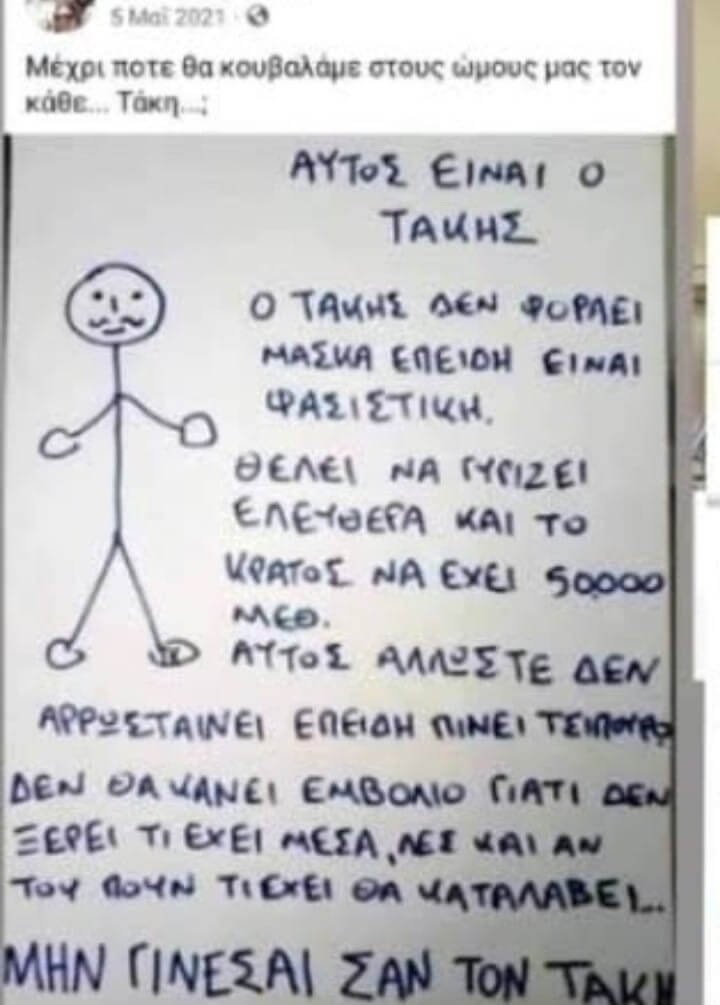 5 Μαΐ 2021
Μέχρι ποτε θα κουβαλάμε στους ώμους μας τον
κάθε... Τάκη...;
ΑΥΤΟΣ ΕΙΝΑΙ Ο
ΤΑΚΗΣ
Ο ΤΑΚΗΣ ΔΕΝ ΦΟΡΑΕΙ
ΜΑΣΚΑ ΕΠΕΙΔΗ ΕΙΝΑΙ
ΦΑΣΙΣΤΙΚΗ.
ΘΕΛΕΙ ΝΑ ΓΥΡΙΖΕΙ
ΕΛΕΥΘΕΡΑ ΚΑΙ ΤΟ
ΚΡΑΤΟΣ ΝΑ ΕΧΕΙ 50.000
ΜΕΘ.
ΑΥΤΟΣ ΑΛΛΩΣΤΕ ΔΕΝ
ΑΡΡΩΣΤΑΙΝΕΙ ΕΠΕΙΔΗ ΠΙΝΕΙ ΤΣΙΠΟΥΡΟ
ΔΕΝ ΘΑ ΚΑΝΕΙ ΕΜΒΟΛΙΟ ΓΙΑΤΙ ΔΕΝ
ΞΕΡΕΙ ΤΙ ΕΧΕΙ ΜΕΣΑ, ΛΕΣ ΚΑΙ ΑΝ
ΤΟΥ ΠΟΥΝ ΤΙ ΕΧΕΙ ΘΑ ΚΑΤΑΛΑΒΕΙ...
ΜΗΝ ΓΙΝΕΣΑΙ ΣΑΝ ΤΟΝ ΤΑΚΗ